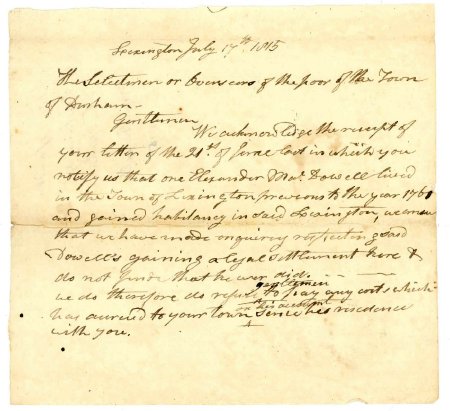 Lexington July 17th. 1815
The Selectmen or Overseers of the poor of the Town
of Dedham—
Gentlemen
We acknowledge the receipt of
your letter of the 21st. of June last in which you
notify us that one Alexander Mac Dowell lived
in the Town of Lexington previous to the year 176
and gained habitancy in said Lexington,
that we have made enquiry respecting said
Dowell's gaining a legal settlement here &
do not finde that he ever did.
gentlemen
we do therefore do refuse to pay any costs which
on his account
has accrued to your town since his residence
with you.